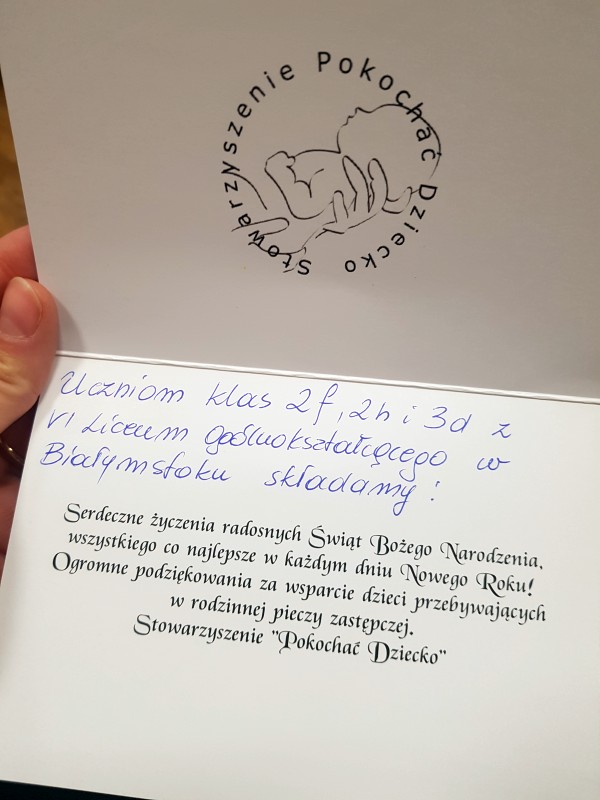 Stowarzyszenie Pokochać Dziecko
Uczniom klas 2f, 2h i 3d z
VI Liceum Ogólnokształcącego w
Białymstoku składamy:
Serdeczne życzenia radosnych Świąt Bożego Narodzenia,
wszystkiego co najlepsze w każdym dniu Nowego Roku!
Ogromne podziękowania za wsparcie dzieci przebywających
w rodzinnej pieczy zastępczej.
Stowarzyszenie "Pokochać Dziecko"